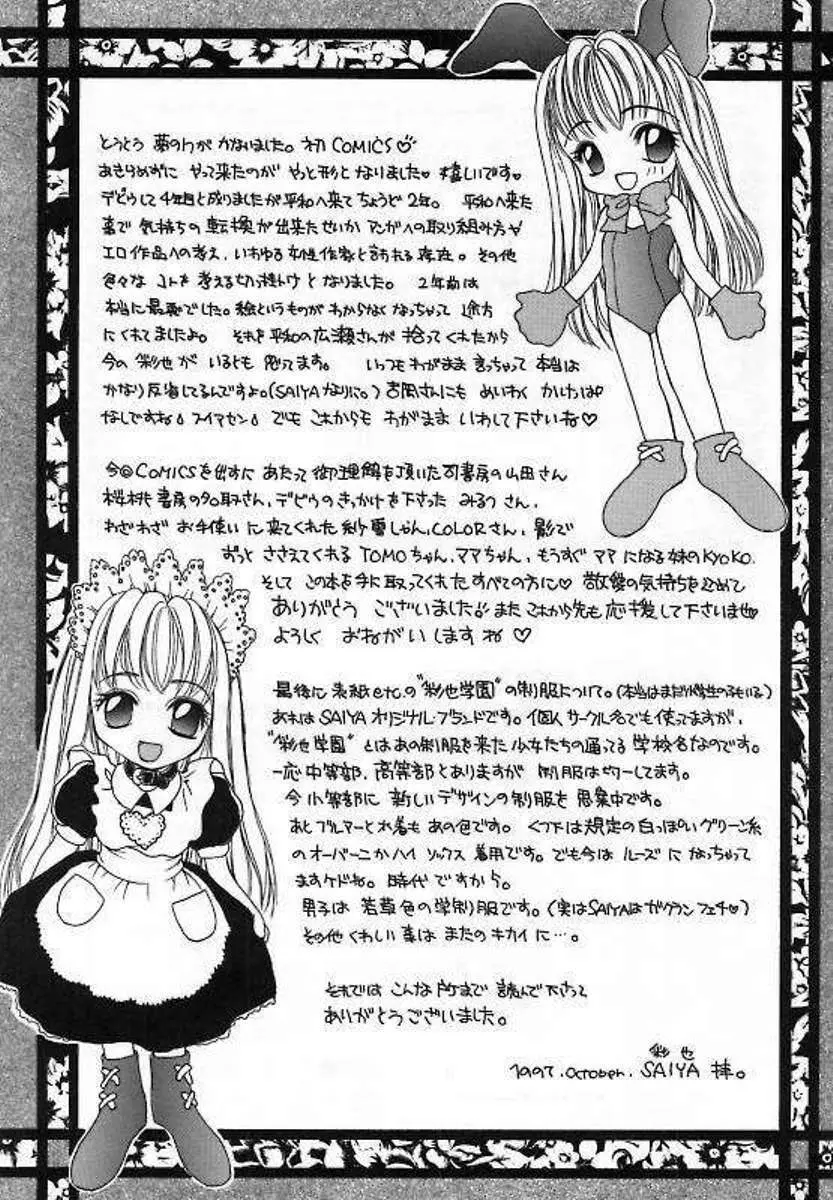 とうとう 夢の1つが かないました。初COMICS♡
あきらめずに やって来たのが やっと形となりました♡ 嬉しいです♡
デビゥして4年目と成りましたが平和へ来てちょうど2年。 平和へ来た
事で 気持ちの 転換が出来たせいか マンガへの取り組み方や
エロ作品への考え、いわゆる女性作家と言われる存在。その他
色々な コトを 考える切っ掛けと なりました。 2年前は
本当に最悪でした。絵というものが わからなく なっちゃって 途方
にくれてましたよ。 それを平和の広瀬さんが 拾ってくれたから
今の 彩也が いるとも 思ってます。 いっつもわがまま 言っちゃって 本当は
かなり反省してるんですよ。(SAIYAなりに。)吉岡さんにも めいわく かけっぱ
なしですね。スイマセン。 でも これからも わがまま いわして下さいね♡
今回COMICSを出すに あたって 御理解を頂いた司書房の山田さん
桜桃書房の名取さん、デビゥのきっかけを下さった みるつ さん、
わざわざ お手伝い に来てくれた 紗夏しゃん、COLORさん、影で
ずっと ささえてくれる TOMOちゃん、ママちゃん、もうすぐ ママ になる妹のKYOKO、
そして この本を手に取ってくれた すべての方に♡ 敬愛の気持ちを込めて
ありがとう ございました。また これから先も 応援して下さいませ♡
よろしく おねがいしますね♡
最後に 表紙etc.の "彩也学園"の制服について。
あれはSAIYAオリジナルブランドです。個人サークル名でも使ってますが、
"彩也学園" とはあの制服を来た 少女たちの通ってる学校名なのです。
一応中等部、高等部とありますが 制服は均一してます。
今 小等部に 新しいデザインの制服を 思案中です。
あと ブルマーと水着も あの色です。 くつ下は規定の白っぽいグリーン系
の オーバーニかハイ ソックス 着用です。でも今は ルーズ に なっちゃって
ますケドね。時代 ですから。
男子は 若草色の学制服です。(実はSAIYAはガクラン フェチ♡)
その他 くわしい事は またの キカイ に…。
それでは こんな所まで 読んで下さって
ありがとうございました。
彩也
1997.October. SAIYA 拝。